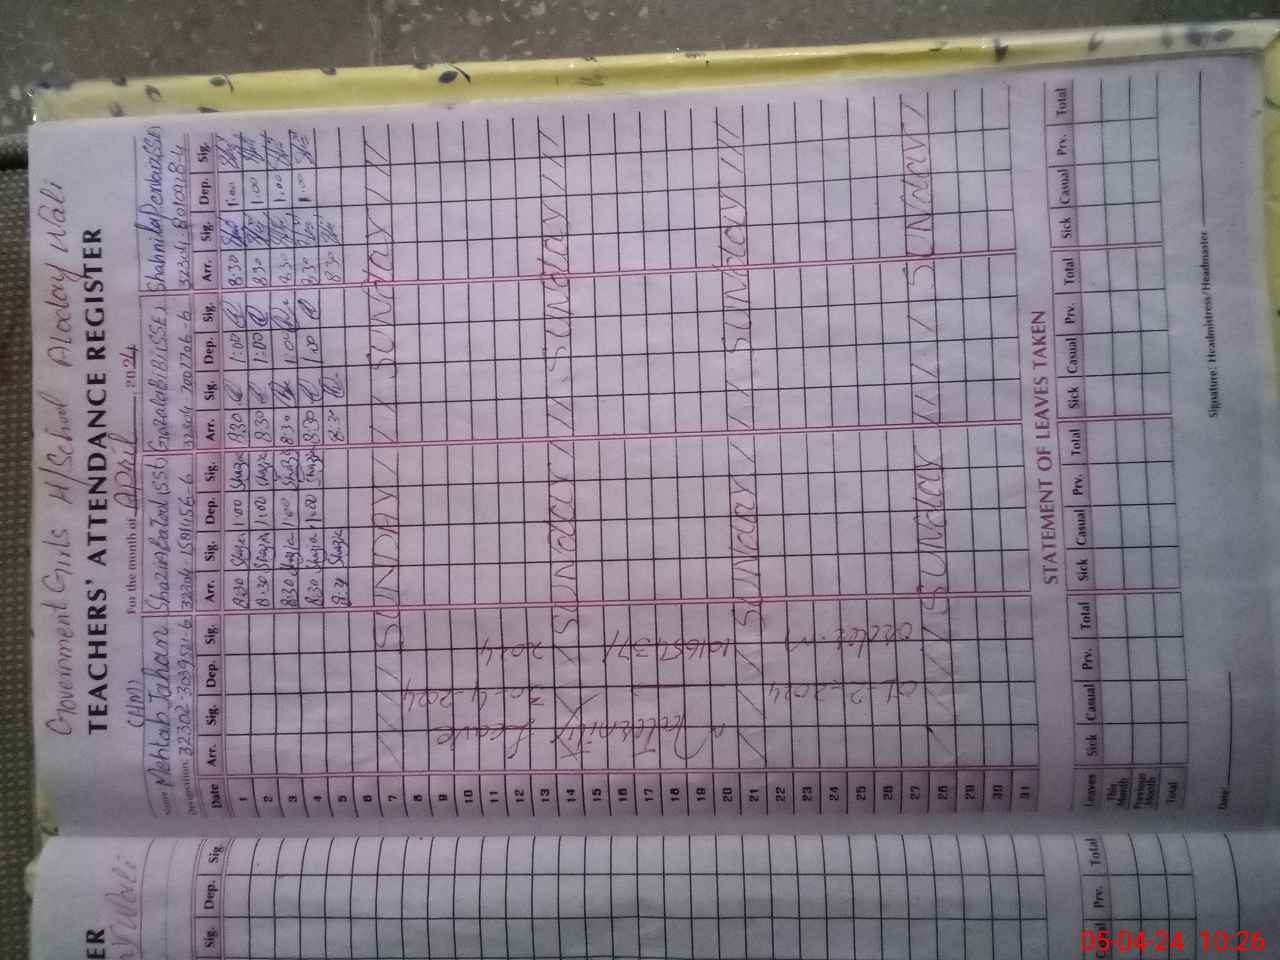 Government Girls H/School Aloday Wali
TEACHERS' ATTENDANCE REGISTER
For the month of April, 2024
(HM)
Name Mehtab Jahan Shazia Batool (SST) Gazala BiBi (SSE) Shahnila (SSE)
Designation: 32302-3039511-6 32304-1581156-6 32304-7007706-6 32304-8010918-4
Date Arr. Sig. Dep. Sig. Arr. Sig. Dep. Sig. Arr. Sig. Dep. Sig. Arr. Sig. Dep. Sig.
1 8:30 Shazia 1:00 Shazia 8:30 1:00 8:30 1:00
2 8:30 Shazia 1:00 Shazia 8:30 1:00 8:30 1:00
3 8:30 Shazia 1:00 Shazia 8:30 1:00 8:30 1:00
4 8:30 Shazia 1:00 Shazia 8:30 1:00 8:30 1:00
5 8:30 Shazia 8:30 8:30
6
7 SUNDAY SUNday
8
9
10
11
12
13
14 SUNday SUNday
15
16
17
18
19
20
21 SUNday SUNday
22
23
24
25
26
27
28 SUNday SUNday
29
30
31
Maternity Leave
01-2-2024
30-4-2024
2024
STATEMENT OF LEAVES TAKEN
Leaves Sick Casual Prv. Total Sick Casual Prv. Total Sick Casual Prv. Total Sick Casual Prv. Total
This Month
Previous Month
Total
Date: Signature: Headmistress/Headmaster
ER
Wali
Sig. Dep. Sig.
Prv. Total
05-04-24 10:26